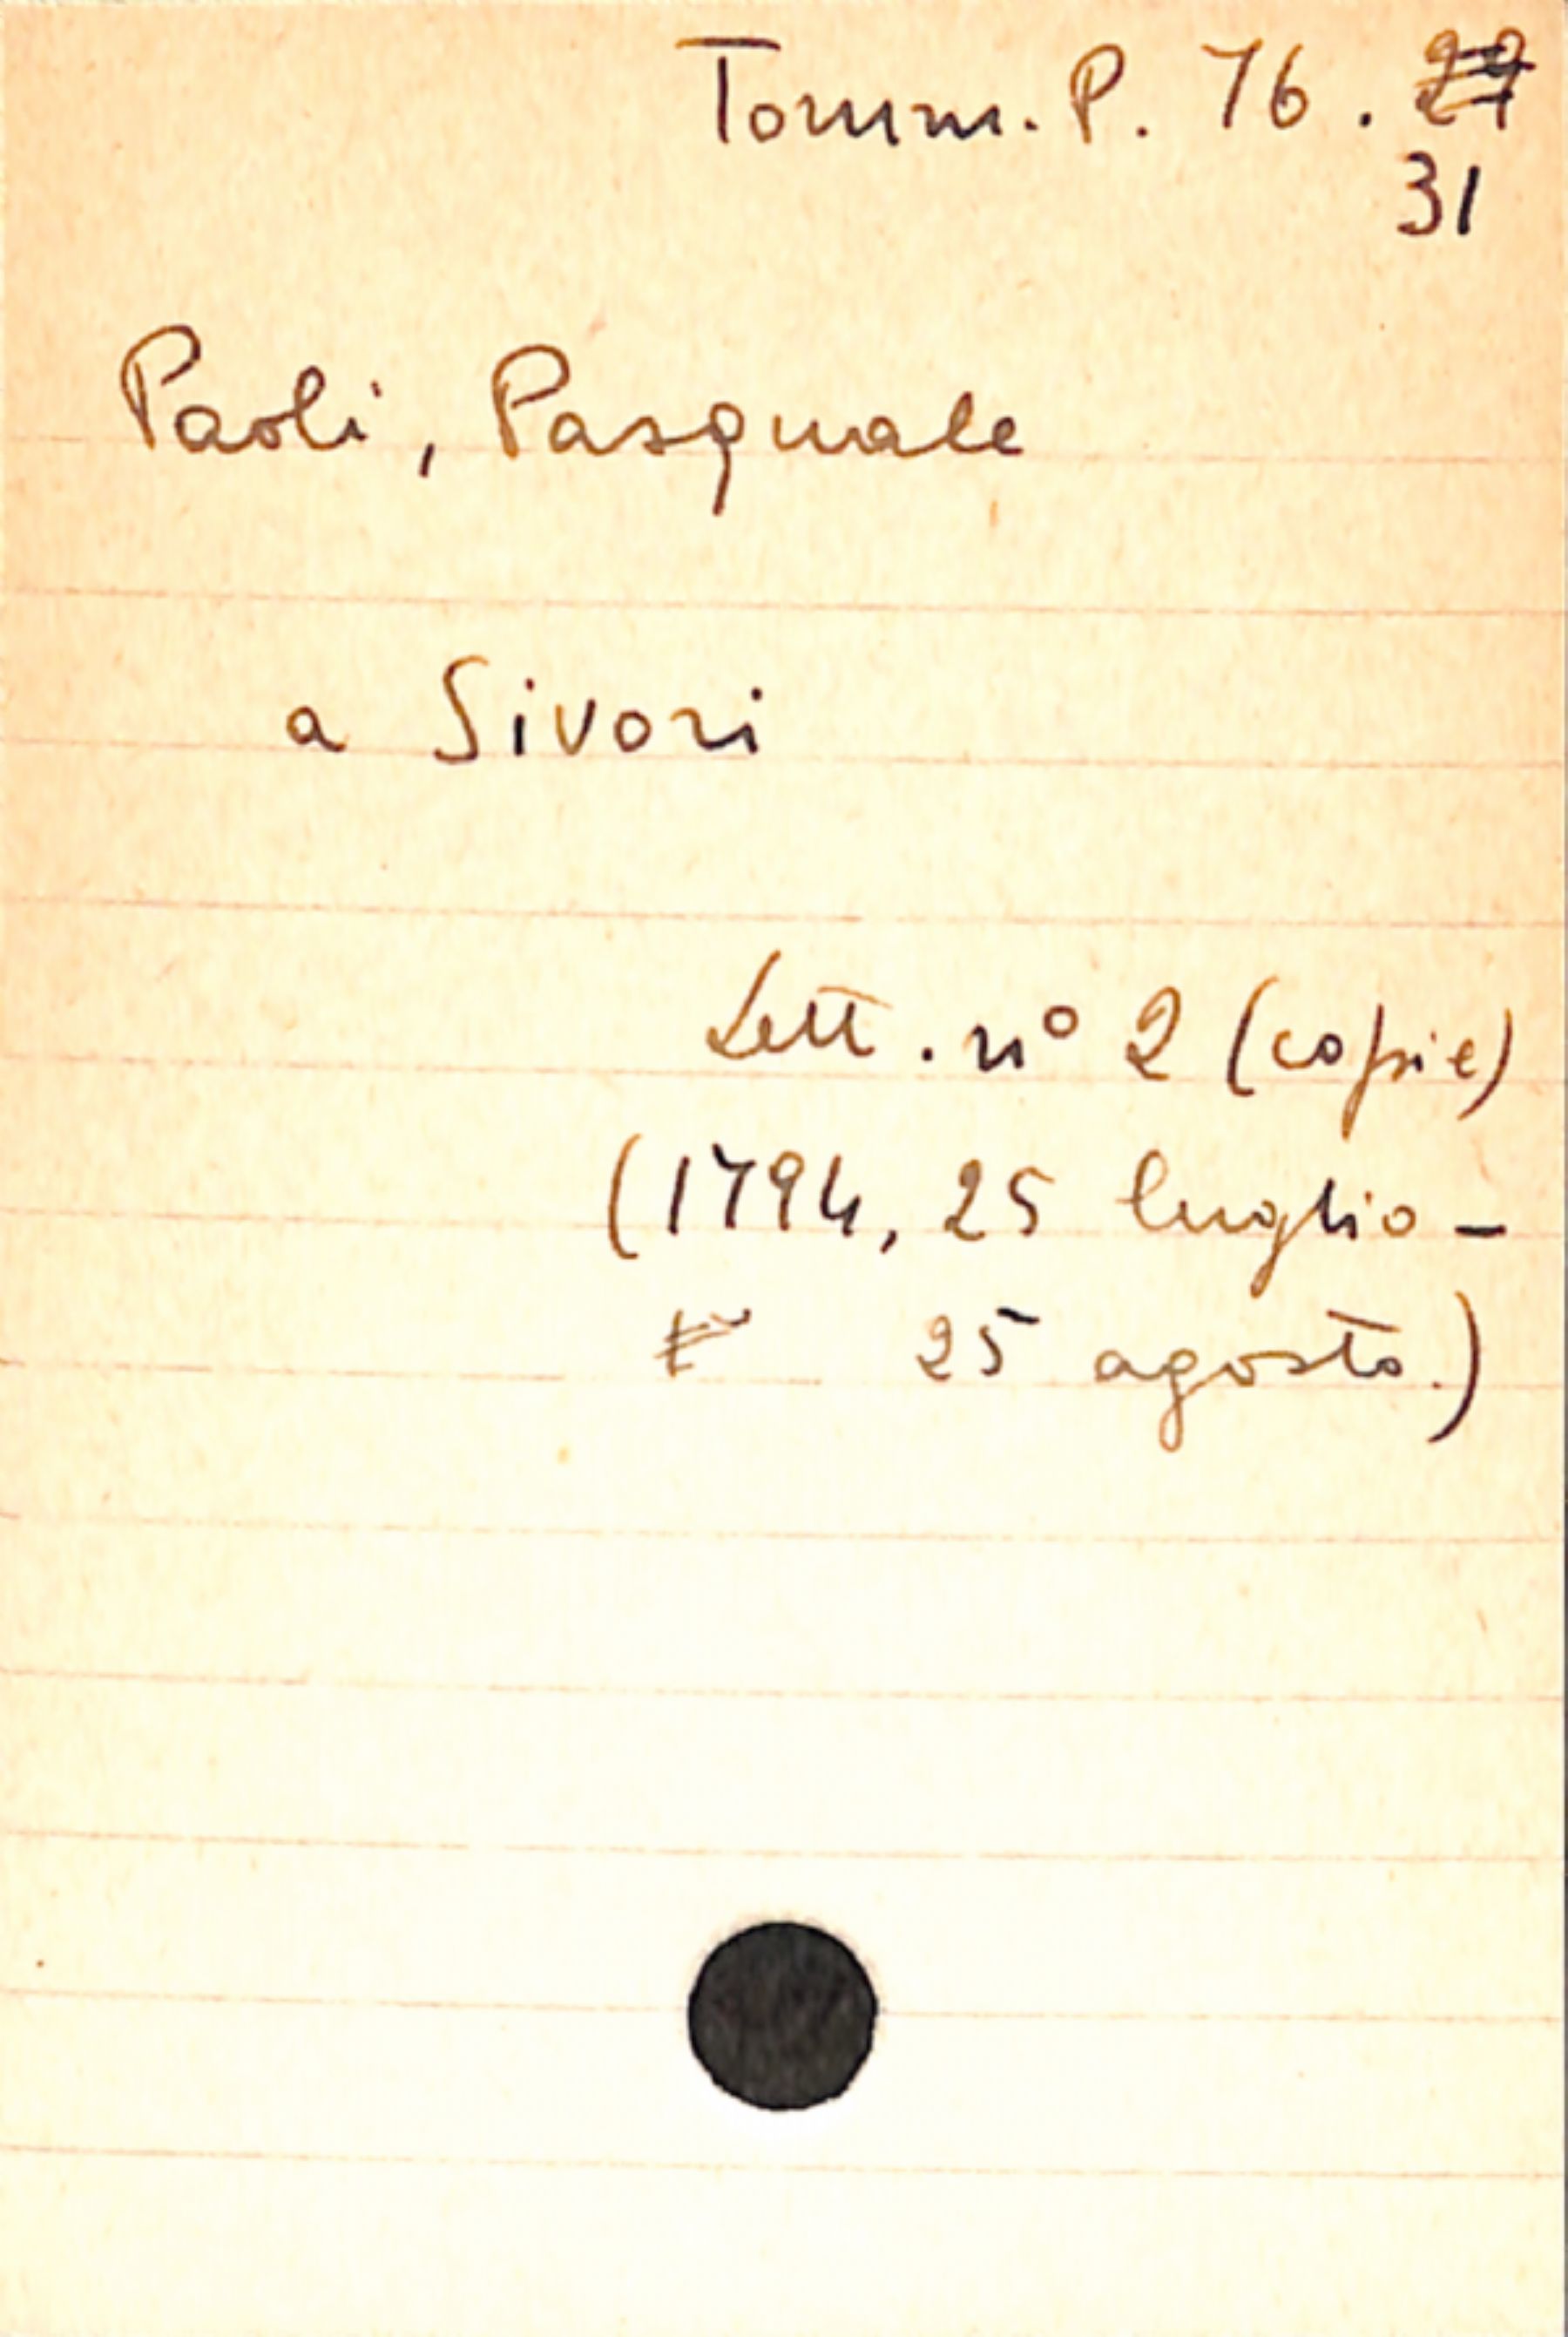 Tomm. P. 76.
31
Paoli, Pasquale
a Sivori
Lett. n° 2 (copie)
(1794, 25 luglio -
25 agosto.)